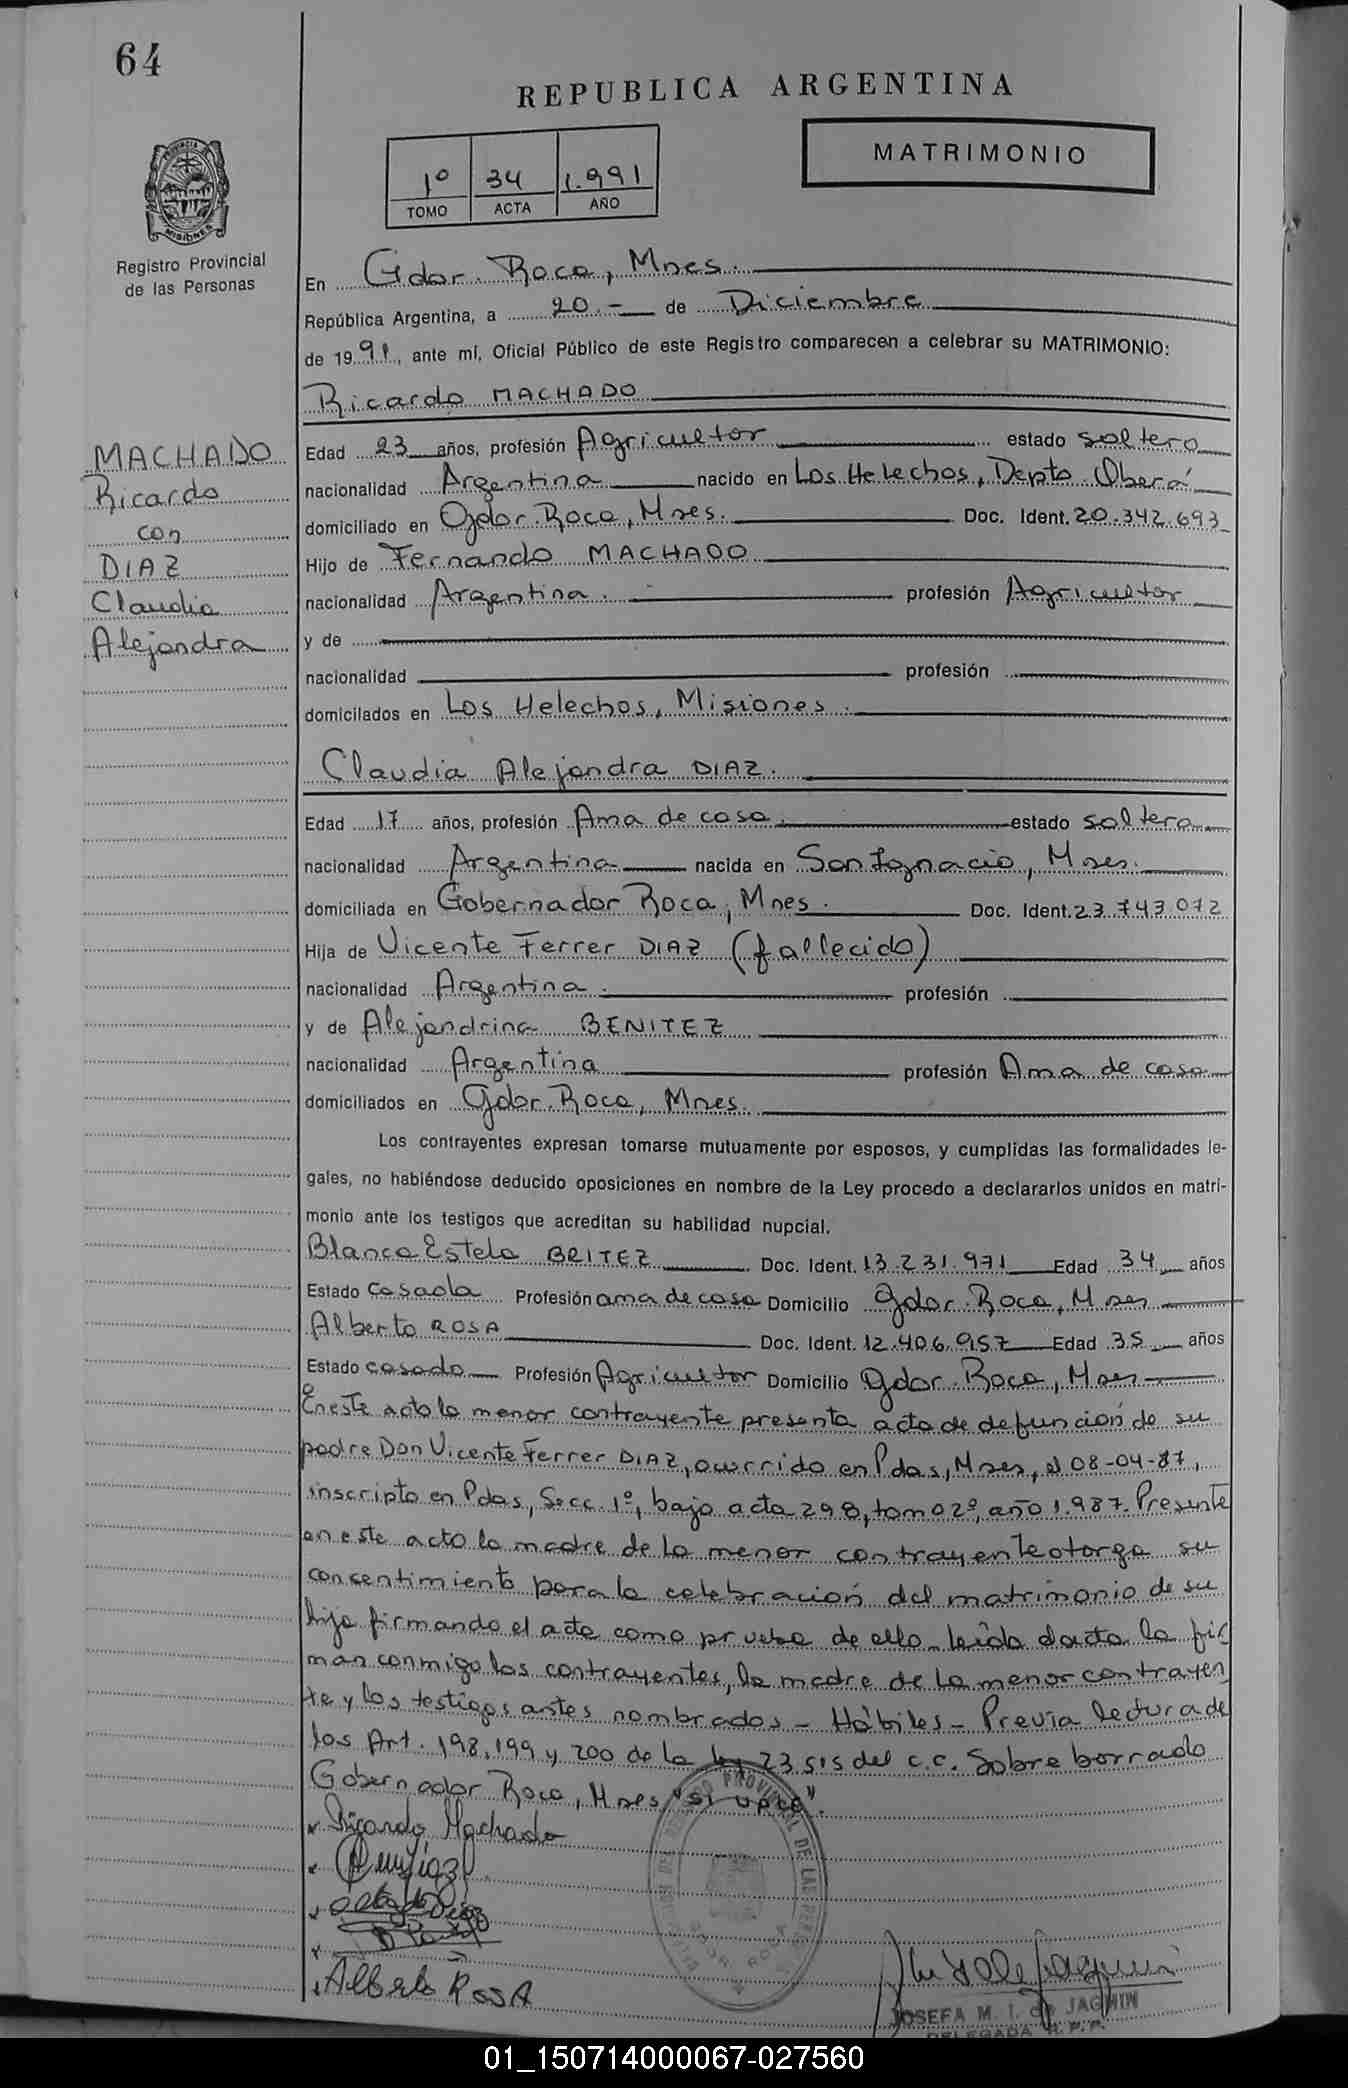 64
REPUBLICA ARGENTINA
MATRIMONIO
1º 34 1.991
TOMO ACTA AÑO
PROVINCIA DE MISIONES
Registro Provincial
de las Personas
En Gdor. Roca, Mnes.
República Argentina, a 20.- de Diciembre
de 1991, ante mí, Oficial Público de este Registro comparecen a celebrar su MATRIMONIO:
Ricardo MACHADO
MACHADO
Ricardo
con
DIAZ
Claudia
Alejandra
Edad 23 años, profesión Agricultor estado soltero
nacionalidad Argentina nacido en Los Helechos, Depto Oberá
domiciliado en Gdor. Roca, Mnes. Doc. Ident. 20.342.693
Hijo de Fernando MACHADO
nacionalidad Argentina. profesión Agricultor
y de
nacionalidad profesión
domicilados en Los Helechos, Misiones.
Claudia Alejandra DIAZ.
Edad 17 años, profesión Ama de casa. estado soltera
nacionalidad Argentina nacida en San Ignacio, Mnes.
domiciliada en Gobernador Roca, Mnes. Doc. Ident. 23.743.072
Hija de Vicente Ferrer DIAZ (fallecido)
nacionalidad Argentina. profesión
y de Alejandrina BENITEZ
nacionalidad Argentina profesión Ama de casa
domiciliados en Gdor. Roca, Mnes.
Los contrayentes expresan tomarse mutuamente por esposos, y cumplidas las formalidades le-
gales, no habiéndose deducido oposiciones en nombre de la Ley procedo a declararlos unidos en matri-
monio ante los testigos que acreditan su habilidad nupcial.
Blanca Estela BRITEZ Doc. Ident. 13.231.971 Edad 34 años
Estado Casada Profesión ama de casa Domicilio Gdor. Roca, Mnes
Alberto ROSA Doc. Ident. 12.406.957 Edad 35 años
Estado casado Profesión Agricultor Domicilio Gdor. Roca, Mnes
En este acto la menor contrayente presenta acta de defunción de su
padre Don Vicente Ferrer DIAZ, ocurrido en Pdas, Mnes, el 08-04-87,
inscripto en Pdas, Secc. 1º, bajo acta 298, tomo 2º, año 1.987. Presente
en este acto la madre de la menor contrayente otorga su
consentimiento para la celebración del matrimonio de su
hija firmando el acta como prueba de ello. Leída el acta la fir
man conmigo los contrayentes, la madre de la menor contrayen
te y los testigos antes nombrados - Hábiles - Previa lectura de
los Art. 198, 199 y 200 de la ley 23.515 del C.C. Sobre borrado
Gobernador Roca, Mnes "si vale".
Ricardo Machado
Alberto ROSA
JOSEFA M. I. de JAGMIN
DELEGADA R.P.P.
01_150714000067-027560